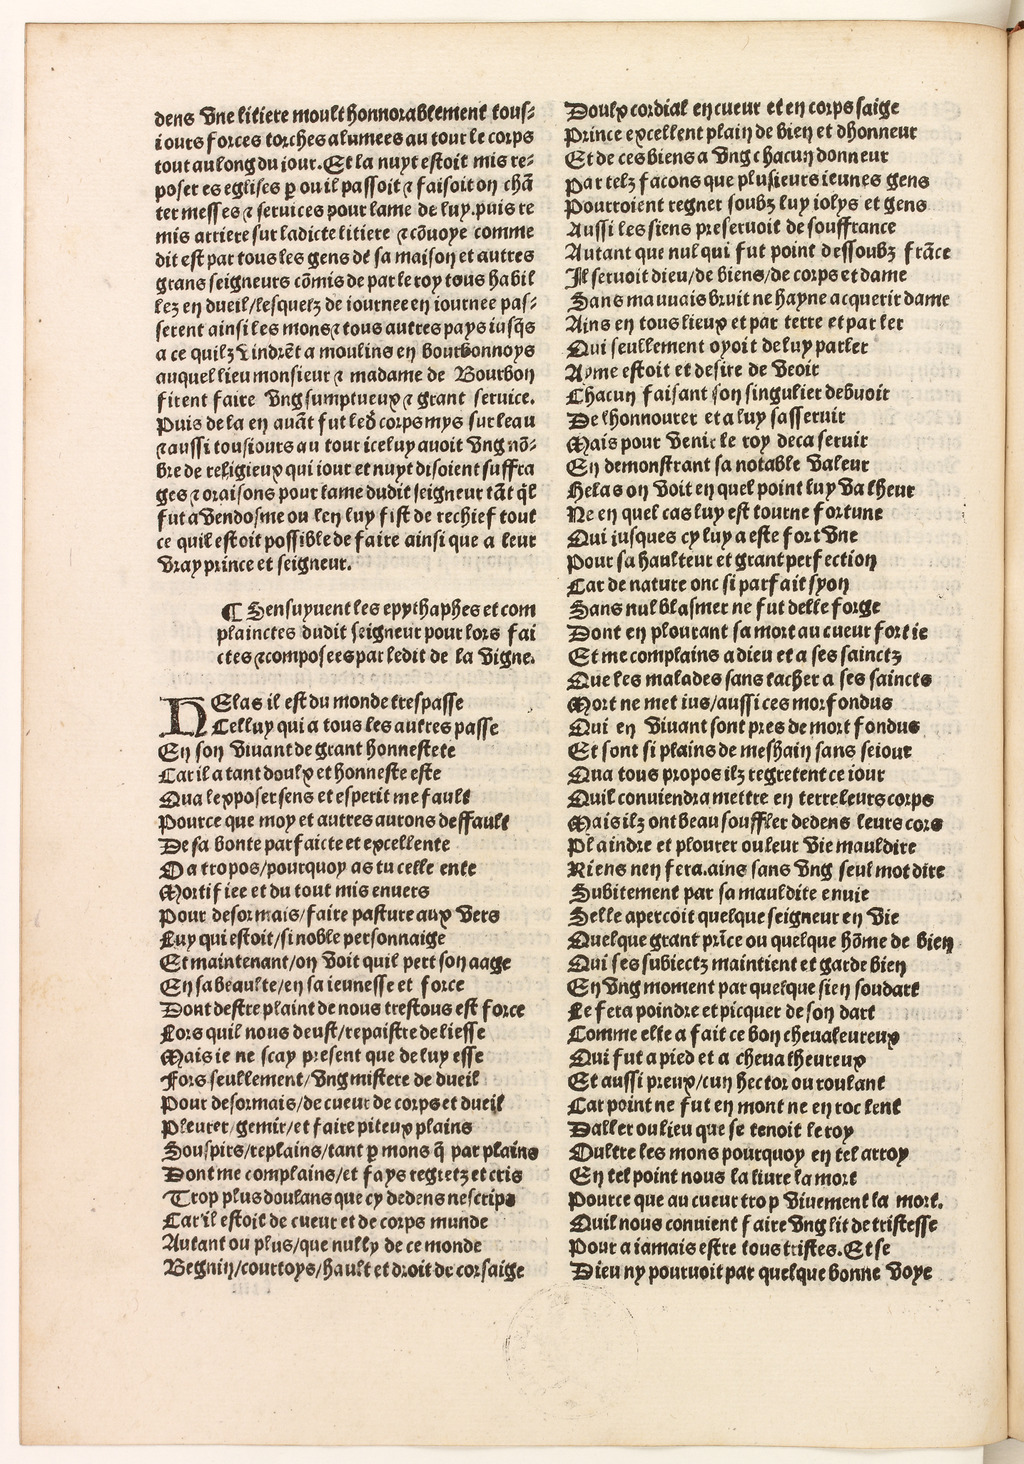 dens vne litiere moult honnorablement tous-
iours forces torches alumees au tour le corps
tout au long du iour. Et la nuyt estoit mis re-
poser es eglises ꝑ ou il passoit ⁊ faisoit on chā
ter messes ⁊ seruices pour lame de luy. puis re
mis arriere sur ladicte litiere ⁊ cōuoye comme
dit est par tous les gens de sa maison et autres
grans seigneurs cōmis de par le roy tous habil
lez en dueil/lesquelz de iournee en iournee pas-
serent ainsi les mons ⁊ tous autres pays iusq̄s
a ce quilz vindrēt a moulins en bourbonnoys
auquel lieu monsieur ⁊ madame de Bourbon
firent faire vng sumptueux ⁊ grant seruice.
Puis de la en auāt fut led̄ corps mys sur leau
⁊ aussi tousiours au tour iceluy auoit vng nō-
bre de religieux qui iour et nuyt disoient suffra
ges ⁊ oraisons pour lame dudit seigneur tāt q̄l
fut a vendosme ou len luy fist de rechief tout
ce quil estoit possible de faire ainsi que a leur
vray prince et seigneur.
¶ Sensuyuent les epythaphes et com
plainctes dudit seigneur pour lors fai
ctes ⁊ composees par ledit de la vigne.
HElas il est du monde trespasse
Celluy qui a tous les autres passe
En son viuant de grant honnestete
Car il a tant doulx et honneste este
Qua lexposer sens et esperit me fault
Pource que moy et autres aurons deffault
De sa bonte parfaicte et excellente
O atropos/pourquoy as tu celle ente
Mortifiee et du tout mis enuers
Pour desormais/faire pasture aux vers
Luy qui estoit/si noble personnaige
Et maintenant/on voit quil pert son aage
En sa beaulte/en sa ieunesse et force
Dont destre plaint de nous trestous est force
Lors quil nous deust/repaistre de liesse
Mais ie ne scay present que de luy esse
Fors seullement/vng mistere de dueil
Pour desormais/de cueur de corps et dueil
Pleurer/gemir/et faire piteux plains
Souspirs/replains/tant ꝑ mons q̄ par plains
Dont me complains/et fays regretz et cris
Trop plus doulans que cy dedens nescrips
Car il estoit de cueur et de corps munde
Autant ou plus/que nully de ce monde
Begnin/courtoys/hault et droit de corsaige
Doulx cordial en cueur et en corps saige
Prince excellent plain de bien et dhonneur
Et de ces biens a vng chacun donneur
Par telz facons que plusieurs ieunes gens
Pourroient regner soubz luy iolys et gens
Aussi les siens preseruoit de souffrance
Autant que nul qui fut point dessoubz frāce
Il seruoit dieu/de biens/de corps et dame
Sans mauuais bruit ne hayne acquerir dame
Ains en tous lieux et par terre et par ler
Qui seullement oyoit de luy parler
Ayme estoit et desire de veoir
Chacun faisant son singulier debuoir
De lhonnourer et a luy sasseruir
Mais pour venir le roy deca seruir
En demonstrant sa notable valeur
Helas on voit en quel point luy va lheur
Ne en quel cas luy est tourne fortune
Qui iusques cy luy a este fort vne
Pour sa haulteur et grant perfection
Car de nature onc si parfait syon
Sans nul blasmer ne fut delle forge
Dont en plourant sa mort au cueur fort ie
Et me complains a dieu et a ses sainctz
Que les malades sans tacher a ses saincts
Mort ne met ius/aussi ces morfondus
Qui en viuant sont pres de mort fondus
Et sont si plains de meshain sans seiour
Qua tous propos ilz regretent ce iour
Quil conuiendra mettre en terre leurs corps
Mais ilz ont beau souffler dedens leurs cors
Plaindre et plourer ou leur vie mauldire
Riens nen fera. ains sans vng seul mot dire
Subitement par sa mauldite enuie
Selle apercoit quelque seigneur en vie
Quelque grant prīce ou quelque hōme de bien
Qui ses subiectz maintient et garde bien
En vng moment par quelque sien soudart
Le fera poindre et picquer de son dart
Comme elle a fait ce bon cheualeureux
Qui fut a pied et a cheual heureux
Et aussi preux/cun hector ou roulant
Car point ne fut en mont ne en roc lent
Daller ou lieu que se tenoit le roy
Oultre les mons pourquoy en tel arroy
En tel point nous la liure la mort
Pource que au cueur trop viuement la mort.
Quil nous conuient faire vng lit de tristesse
Pour a iamais estre tous tristes. Et se
Dieu ny pouruoit par quelque bonne voye